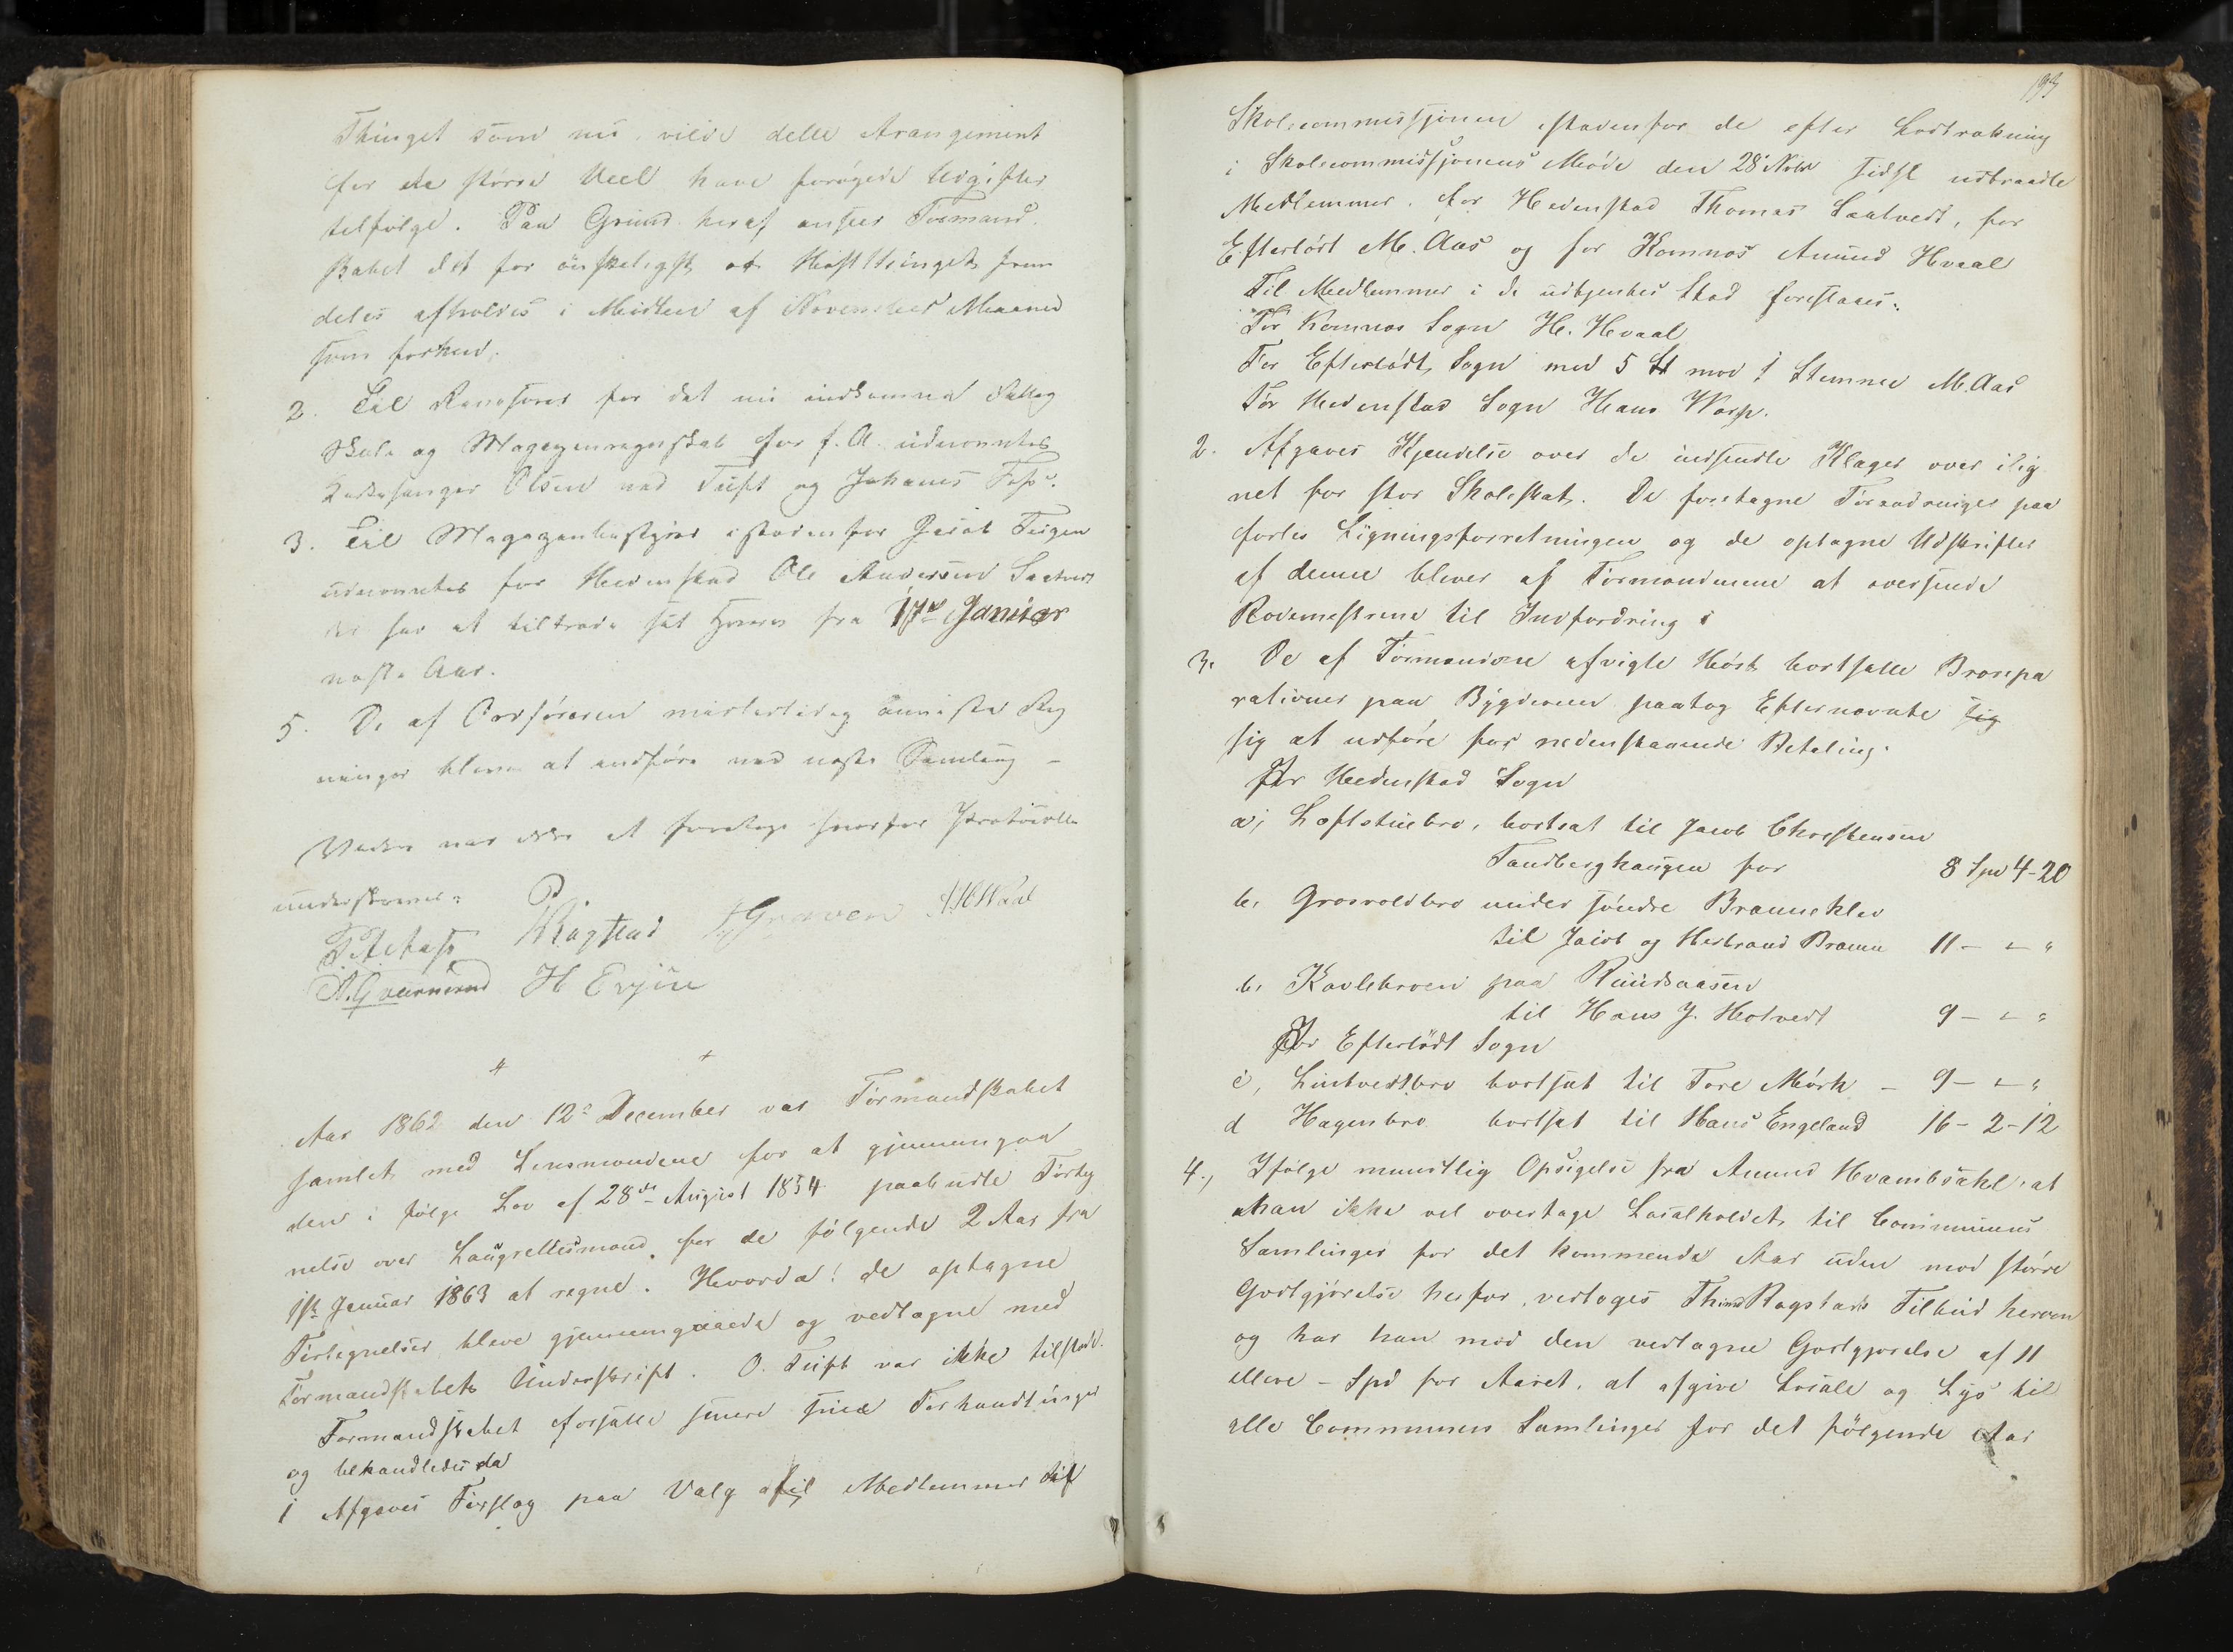 Thinget som nu vilde dette Arangement
for de större Deel have forøgede Udgifter
tilfölge. Paa Grund heraf anseer Formand
skabet det for önskeligst at Høstthinget frem
deles afholdes i Midten af November Maaned
som forhen.
2. Til Revisorer for det nu indkomne
Skole og Magazinregnskab for f. A. udnevntes
Kirkesanger Olsen ved Tuft og Johannes Foss.
3. Til Magazinbestyrer istedenfor Jacob Teigen
udnevntes for Hedenstad Ole Andersen Saatvedt
der har at tiltræde sit Hverv fra 17de Januar
næste Aar.
5. De af Ordföreren Reg
ninger bleve at indföre ved næste Samling –
Videre var ikke at foretage hvorfor Protocollen
underskrives:
Ragstad J. Graven
H Evju
Aar 1862 den 12te December var Formandskabet
samlet med Lensmandene for at gjennemgaa
den i fölge Lov af 28de August 1854 paabudte Forteg
nelse over Laugrettesmænd for de fölgende 2 Aar fra
1ste Januar 1863 at regne. Hvorda! de optagne
Fortegnelser bleve gjennemgaaede og vedtagne med
Formandskabets Underskrift. O. Tuft var ikke tilstede.
Formandskabet forsatte senere sine Forhandlinger
og behandledes da
1 Afgaves Forslag paa Valg af Medlemmer til
193
Skolecommissjonen istedenfor de efter Lodtrækning
i Skolecommissjonens Møde den 28 Nobr sidst udtraadte
Medlemmer, for Hedenstad Thomas Saatvedt, for
Efterlödt M. Aas og for Komnes Amund Hvaal
Til Medlemmer i de udtjentes Sted foreslaaes:
For Komnes Sogn H. Hvaal
For Efterlödt Sogn med 5 St mod 1 Stemme M. Aas
For Hedenstad Sogn Hans Worp.
2. Afgaves Kjendelse over de indsendte Klager over ilig
net for stor Skoleskat. De foretagne Forandringer paa
förtes Ligningsforretningen og de optagne Udskrifter
af denne bliver af Formændnene at oversende
Rodemestrene til Indfordring
3. De af Formændene afvigte Höst bortsatte Brorepa
rationer paa Bygdeveiene paatog Efternævnte sig
sig at udföre for nedenstaaende Betaling.
For Hedenstad Sogn
a, Loftstuebro, bortsat til Jacob Christensen
Tandberghaugen for 8 Spd 4-20
b, Grosvoldbro under söndre Brænneklev
til Jacob og Herbrand Brænn 11 – " "
b, Kavlebroen paa Ruudsaasen
til Hans J. Hotvedt 9 – " "
For Efterlödt Sogn
c, Lindtvedtbro bortsat til Tore Mörk – 9 – " "
d Hagenbro bortsat til Hans Engeland 16 – 2 – 12
4., Ifölge mundtlig Opsigelse fra Amund Hvambsahl, at
han ikke vil overtage Localholdet til Communens
Samlinger for det kommende Aar uden mod större
Godtgjörelse herfor, vedtoges Thimd Ragstads Tilbud herom
og har han mod den vedtagne Godtgjörelse af 11
elleve – Spd for Aaret, at afgive Locale og Lys til
alle Communens Samlinger for det fölgende Aar